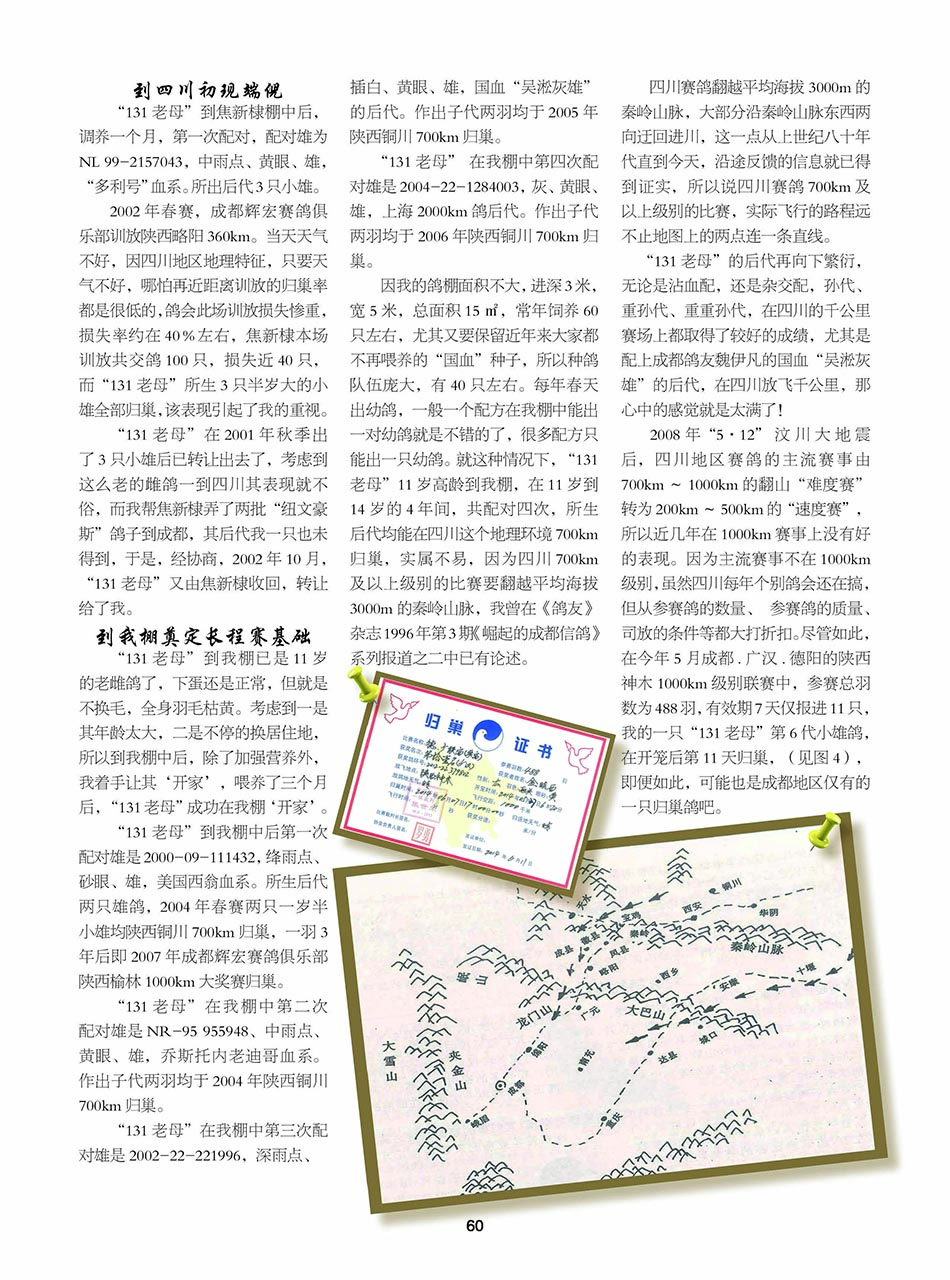 到四川初现端倪
“131 老母”到焦新棣棚中后，
调养一个月，第一次配对，配对雄为
NL 99-2157043，中雨点、黄眼、雄，
“多利号”血系。所出后代 3 只小雄。
2002 年春赛，成都辉宏赛鸽俱
乐部训放陕西略阳 360km。当天天气
不好，因四川地区地理特征，只要天
气不好，哪怕再近距离训放的归巢率
都是很低的，鸽会此场训放损失惨重，
损失率约在 40％左右，焦新棣本场
训放共交鸽 100 只，损失近 40 只，
而“131 老母”所生 3 只半岁大的小
雄全部归巢，该表现引起了我的重视。
“131 老母”在 2001 年秋季出
了 3 只小雄后已转让出去了，考虑到
这么老的雌鸽一到四川其表现就不
俗，而我帮焦新棣弄了两批“纽文豪
斯”鸽子到成都，其后代我一只也未
得到，于是，经协商，2002 年 10 月，
“131 老母”又由焦新棣收回，转让
给了我。
到我棚奠定长程赛基础
“131 老母”到我棚已是 11 岁
的老雌鸽了，下蛋还是正常，但就是
不换毛，全身羽毛枯黄。考虑到一是
其年龄太大，二是不停的换居住地，
所以到我棚中后，除了加强营养外，
我着手让其‘开家’，喂养了三个月
后，“131 老母”成功在我棚‘开家’。
“131 老母”到我棚中后第一次
配对雄是 2000-09-111432，绛雨点、
砂眼、雄，美国西翁血系。所生后代
两只雄鸽，2004 年春赛两只一岁半
小雄均陕西铜川 700km 归巢，一羽 3
年后即 2007 年成都辉宏赛鸽俱乐部
陕西榆林 1000km 大奖赛归巢。
“131 老母”在我棚中第二次
配对雄是 NR-95 955948、中雨点、
黄眼、雄，乔斯托内老迪哥血系。
作出子代两羽均于 2004 年陕西铜川
700km 归巢。
“131 老母”在我棚中第三次配
对雄是 2002-22-221996，深雨点、
插白、黄眼、雄，国血“吴淞灰雄”
的后代。作出子代两羽均于 2005 年
陕西铜川 700km 归巢。
“131 老母” 在我棚中第四次配
对雄是 2004-22-1284003，灰、黄眼、
雄，上海 2000km 鸽后代。作出子代
两羽均于 2006 年陕西铜川 700km 归
巢。
因我的鸽棚面积不大，进深 3 米，
宽 5 米，总面积 15 ㎡，常年饲养 60
只左右，尤其又要保留近年来大家都
不再喂养的“国血”种子，所以种鸽
队伍庞大，有 40 只左右。每年春天
出幼鸽，一般一个配方在我棚中能出
一对幼鸽就是不错的了，很多配方只
能出一只幼鸽。就这种情况下，“131
老母”11 岁高龄到我棚，在 11 岁到
14 岁的 4 年间，共配对四次，所生
后代均能在四川这个地理环境 700km
归巢，实属不易，因为四川 700km
及以上级别的比赛要翻越平均海拔
3000m 的秦岭山脉，我曾在《鸽友》
杂志 1996 年第 3 期《崛起的成都信鸽》
系列报道之二中已有论述。
四川赛鸽翻越平均海拔 3000m 的
秦岭山脉，大部分沿秦岭山脉东西两
向迂回进川，这一点从上世纪八十年
代直到今天，沿途反馈的信息就已得
到证实，所以说四川赛鸽 700km 及
以上级别的比赛，实际飞行的路程远
不止地图上的两点连一条直线。
“131 老母”的后代再向下繁衍，
无论是沾血配，还是杂交配，孙代、
重孙代、重重孙代，在四川的千公里
赛场上都取得了较好的成绩，尤其是
配上成都鸽友魏伊凡的国血“吴淞灰
雄”的后代，在四川放飞千公里，那
心中的感觉就是太满了！
2008 年“5·12”汶川大地震
后，四川地区赛鸽的主流赛事由
700km ～ 1000km 的翻山“难度赛”
转为 200km ～ 500km 的“速度赛”，
所以近几年在 1000km 赛事上没有好
的表现。因为主流赛事不在 1000km
级别，虽然四川每年个别鸽会还在搞，
但从参赛鸽的数量、 参赛鸽的质量、
司放的条件等都大打折扣。尽管如此，
在今年 5 月成都 . 广汉 . 德阳的陕西
神木 1000km 级别联赛中，参赛总羽
数为 488 羽，有效期 7 天仅报进 11 只，
我的一只“131 老母”第 6 代小雄鸽，
在开笼后第 11 天归巢，（见图 4），
即便如此，可能也是成都地区仅有的
一只归巢鸽吧。
归巢 证书
天水
宝鸡
西安
铜川
华阴
成县
徽县
凤县
秦岭
秦岭山脉
略阳
西乡
安康
十堰
岷山
龙门山
广元
大巴山
城口
绵阳
南充
达县
大雪山
夹金山
成都
峨眉
重庆
60